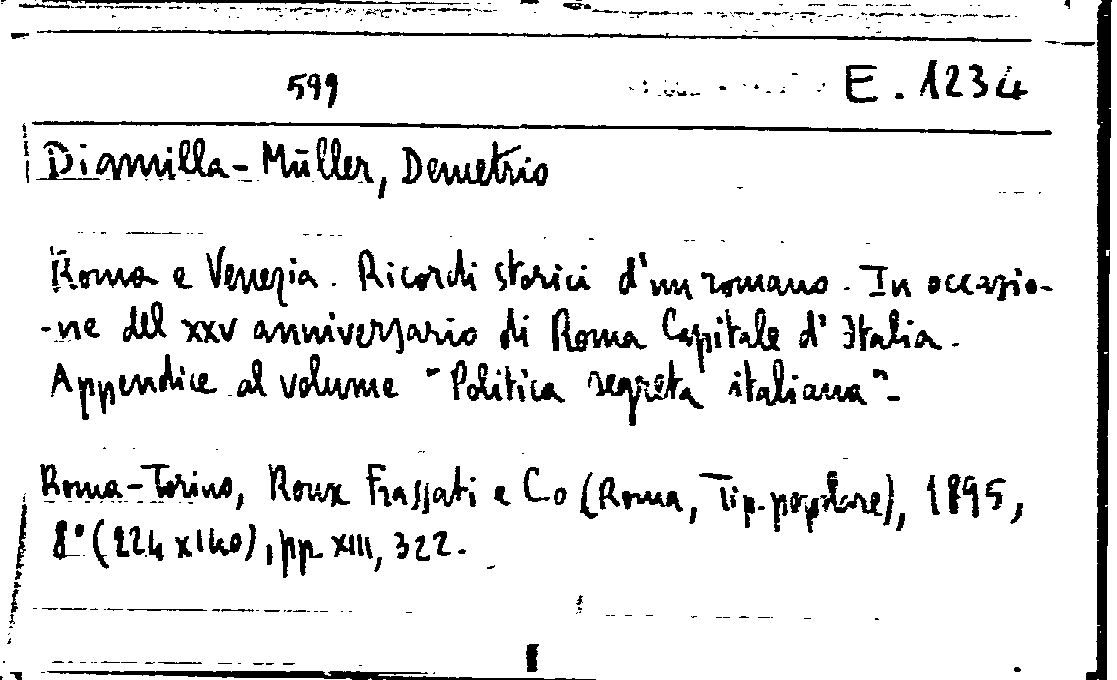 599 E. 1234
Diamilla-Müller, Demetrio
Roma e Venezia. Ricordi storici d'un romano. In occasio-
-ne del XXV anniversario di Roma Capitale d'Italia.
Appendice al volume "Politica segreta italiana"-
Roma-Torino, Roux Frassati e Co (Roma, Tip. popolare), 1895,
8° (224x140), pp. XIII, 322.